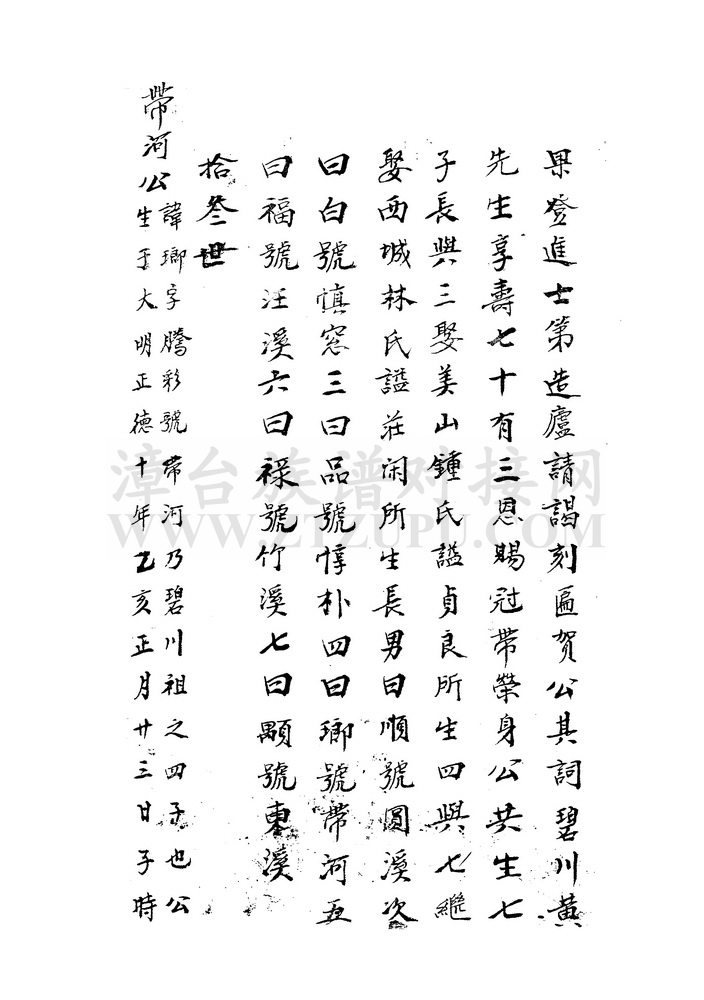 果登進士第造廬請謁刻匾賀公其詞碧川黃
先生享壽七十有三恩賜冠帶榮身公共生七
子長與三娶美山鍾氏謚貞良所生四與七繼
娶西城林氏謚莊闲所生長男曰順號圓溪次
曰白號慎窓三曰品號惇朴四曰瑯號帶河五
曰福號汪溪六曰祿號竹溪七曰顒號東溪
拾叁世
帶河公
諱瑯字騰彩號帶河乃碧川祖之四子也公
生于大明正德十年乙亥正月廿三日子時
漳台族谱对接网
WWW.ZTZUPU.COM